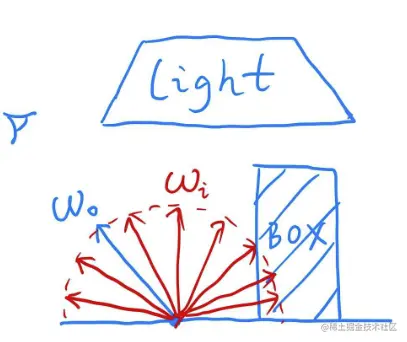 light
Wi
Wo
BOX
@稀土掘金技术社区